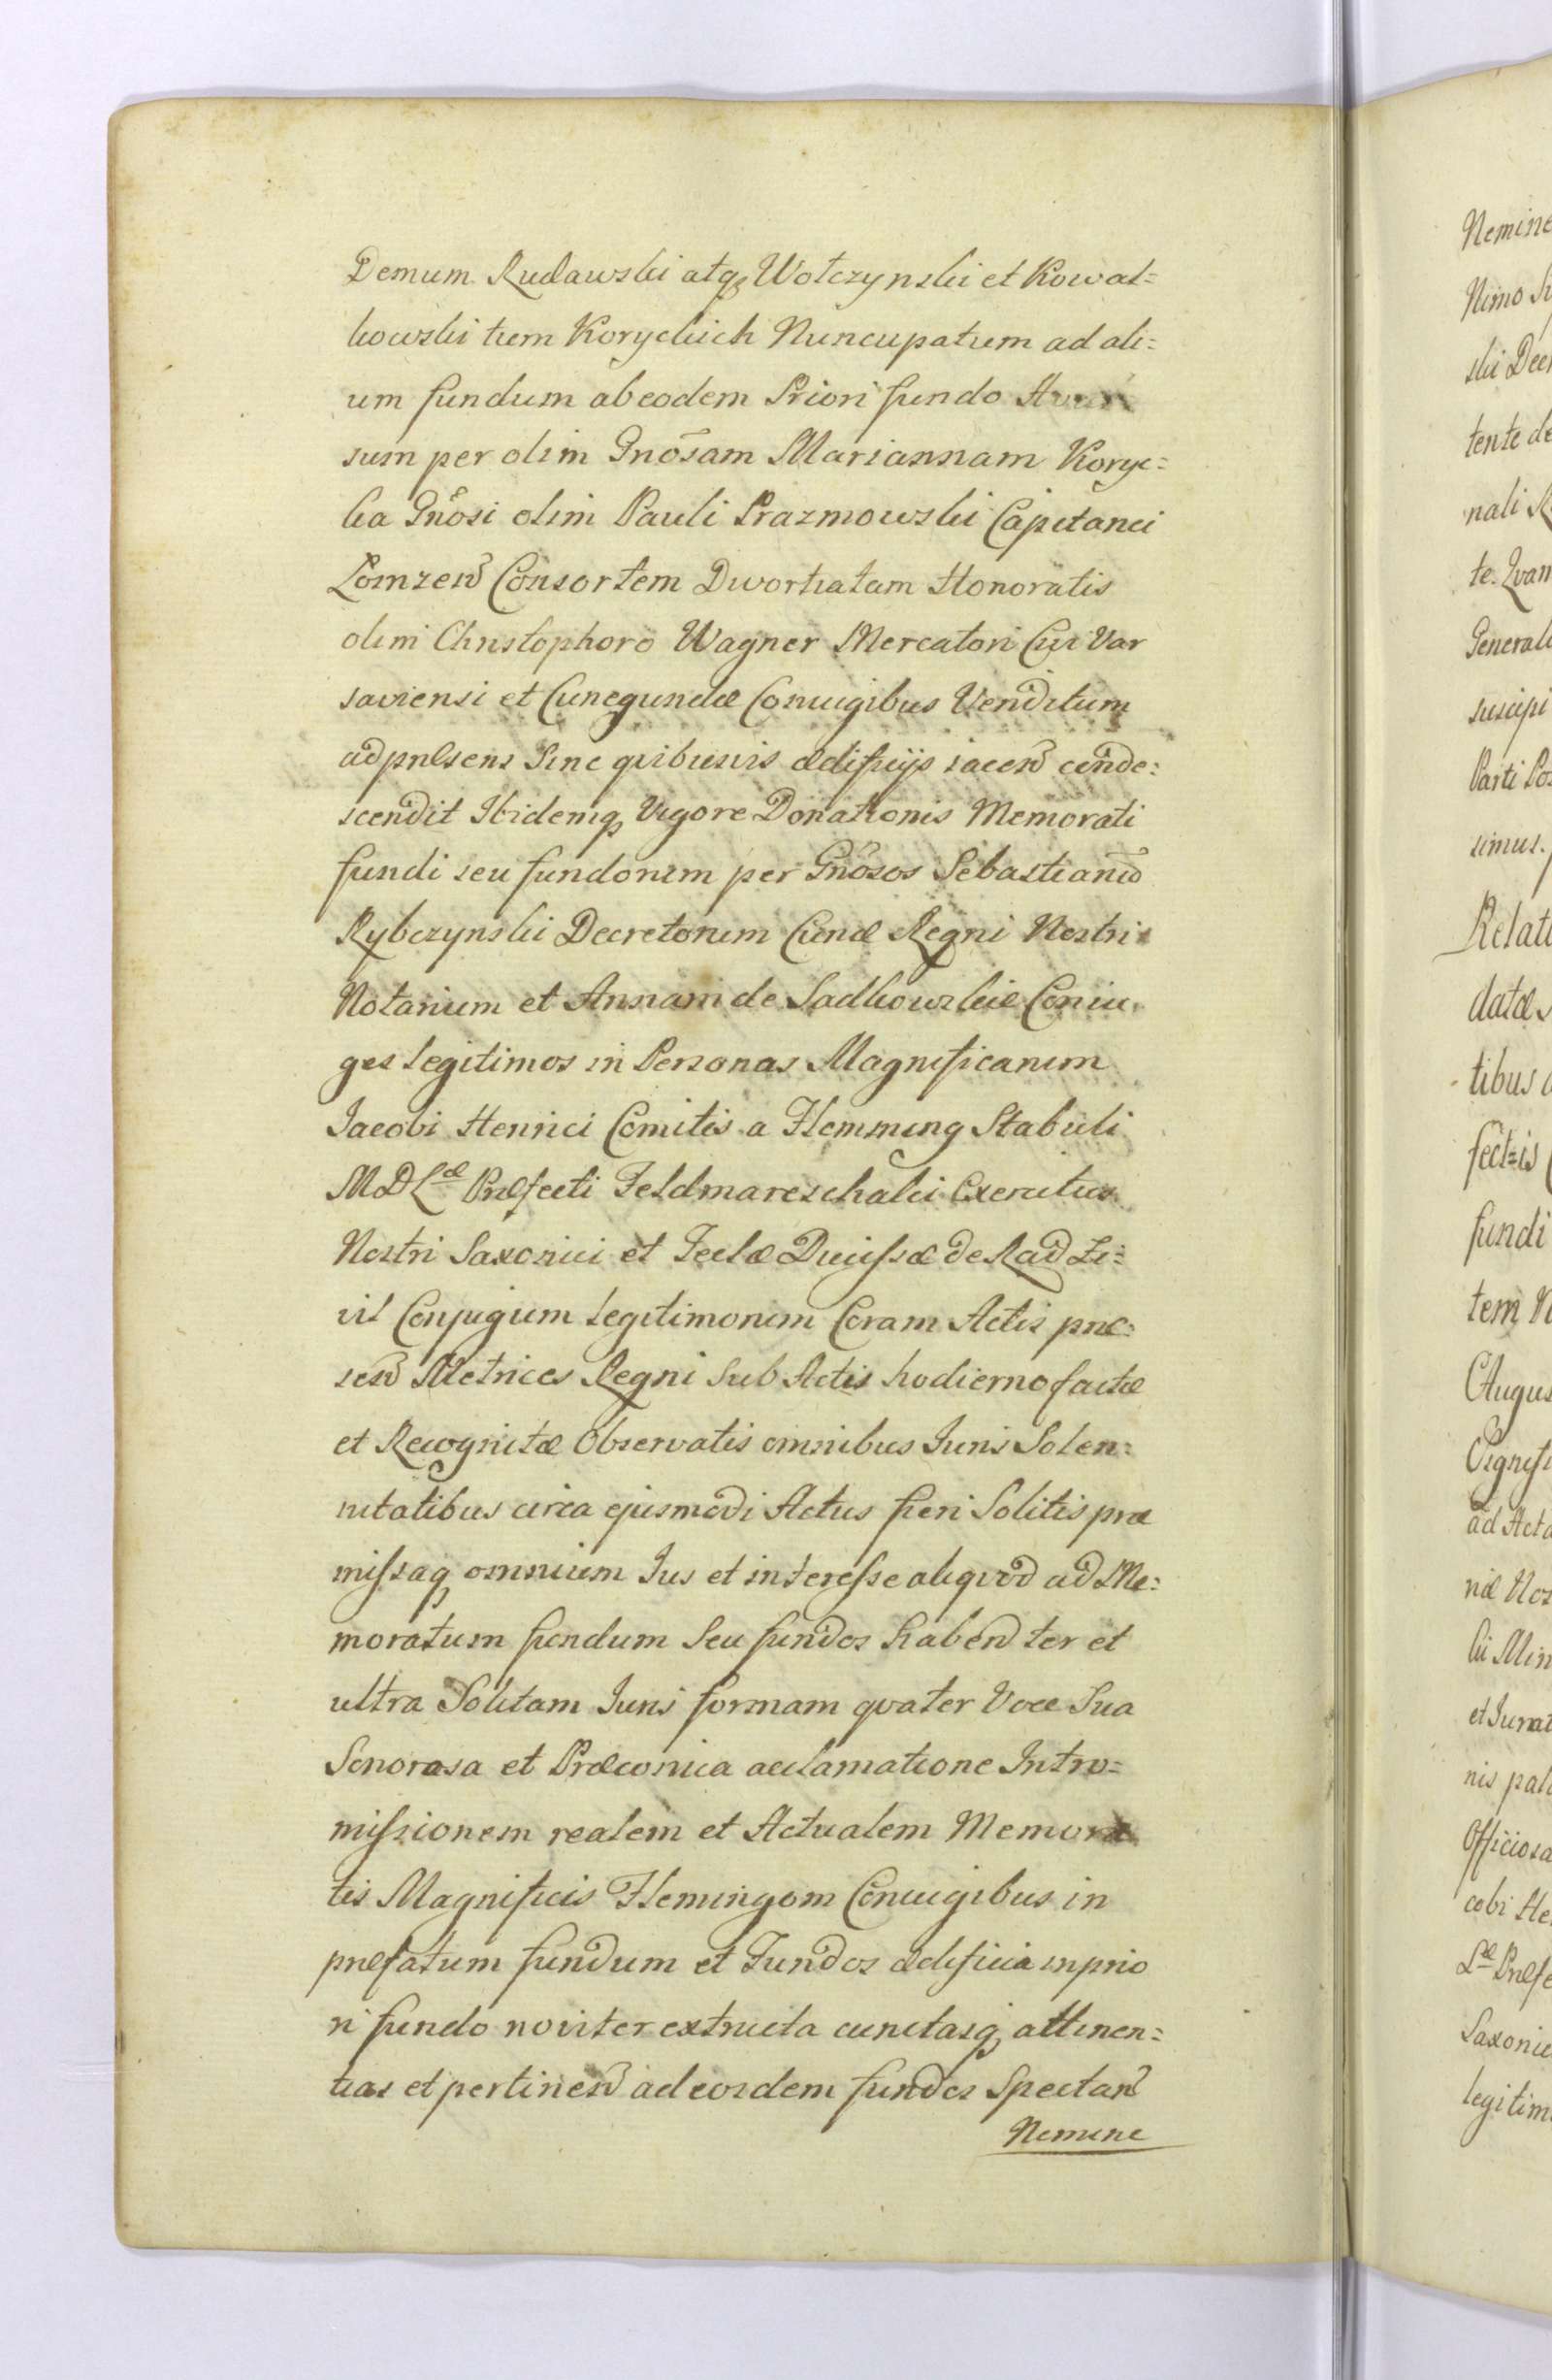 Demum Rudawski atq, Wolczynski et Kowal=
kowski tum Koryckich Nuncupatum ad ali=
um fundum ab eodem Priori fundo
sum per olim Gnosam Mariannam Koryc=
ka Gnosi olim Pauli Prazmowski Capitanei
Lomzen Consortem Divortiatam Honoratis
olim Christophoro Wagner Mercatori Civi Var
saviensi et Cunegundæ Coniugibus Venditum
ad pnlsens Sine qvibusvis ædificijs iacen conde=
scendit Ibidemq, Vigore Donationis Memorati
fundi seu fundorum per Gnosos Sebastianu
Rybczynski Decretorum Curiæ Regni Nestri
Notarium et Annam de Sadkowskie Coniu
ges legitimos in Personas Magnificarum
Iacobi Henrici Comitis a Flemming Stabuli
M D L^æ Prlfecti Feldmareschalci Exercitus
Nestri Saxonici et Teclæ Ducissæ de Radzi=
vil Conjugum Legitimorum Coram Actis præ=
sen Metrices Regni Sub Actis hodierno factæ
et Recognitæ Observatis omnibus Iuris Solen=
nitatibus circa ejusmodi Actus fieri Solitis præ
missaq, omnium Ius et interesse aliqvod ad Me=
moratum fundum Seu fundos haben ter et
ultra Solitam Iuris formam qvater Voce Sua
Sonorosa et Præconica acclamatione Intro=
missionem realem et Actualem Memora
tis Magnificis Flemingom Coniugibus in
prlfatum fundum et Fundos ædificia in prio
ri fundo noviter extructa cunctasq, attinen=
tias et pertinen ad eosdem fundos Spectan
Nemine
Nemine
Nimo
tente de
nali
te.
suscipi
Parti
simus.
datæ
tibus
fect=is
fundi
tem
Augus
ad Acta
et Iurat
nis
Officiosa
cobi He
Saxonic
legitim